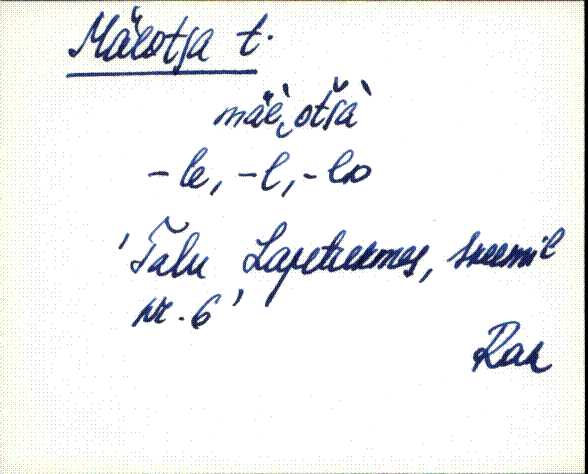 Mäeotsa t.
mäè̮otšà
-le, -l,
'Talu Lapetukmes, skeemil
nr. 6'
Ran